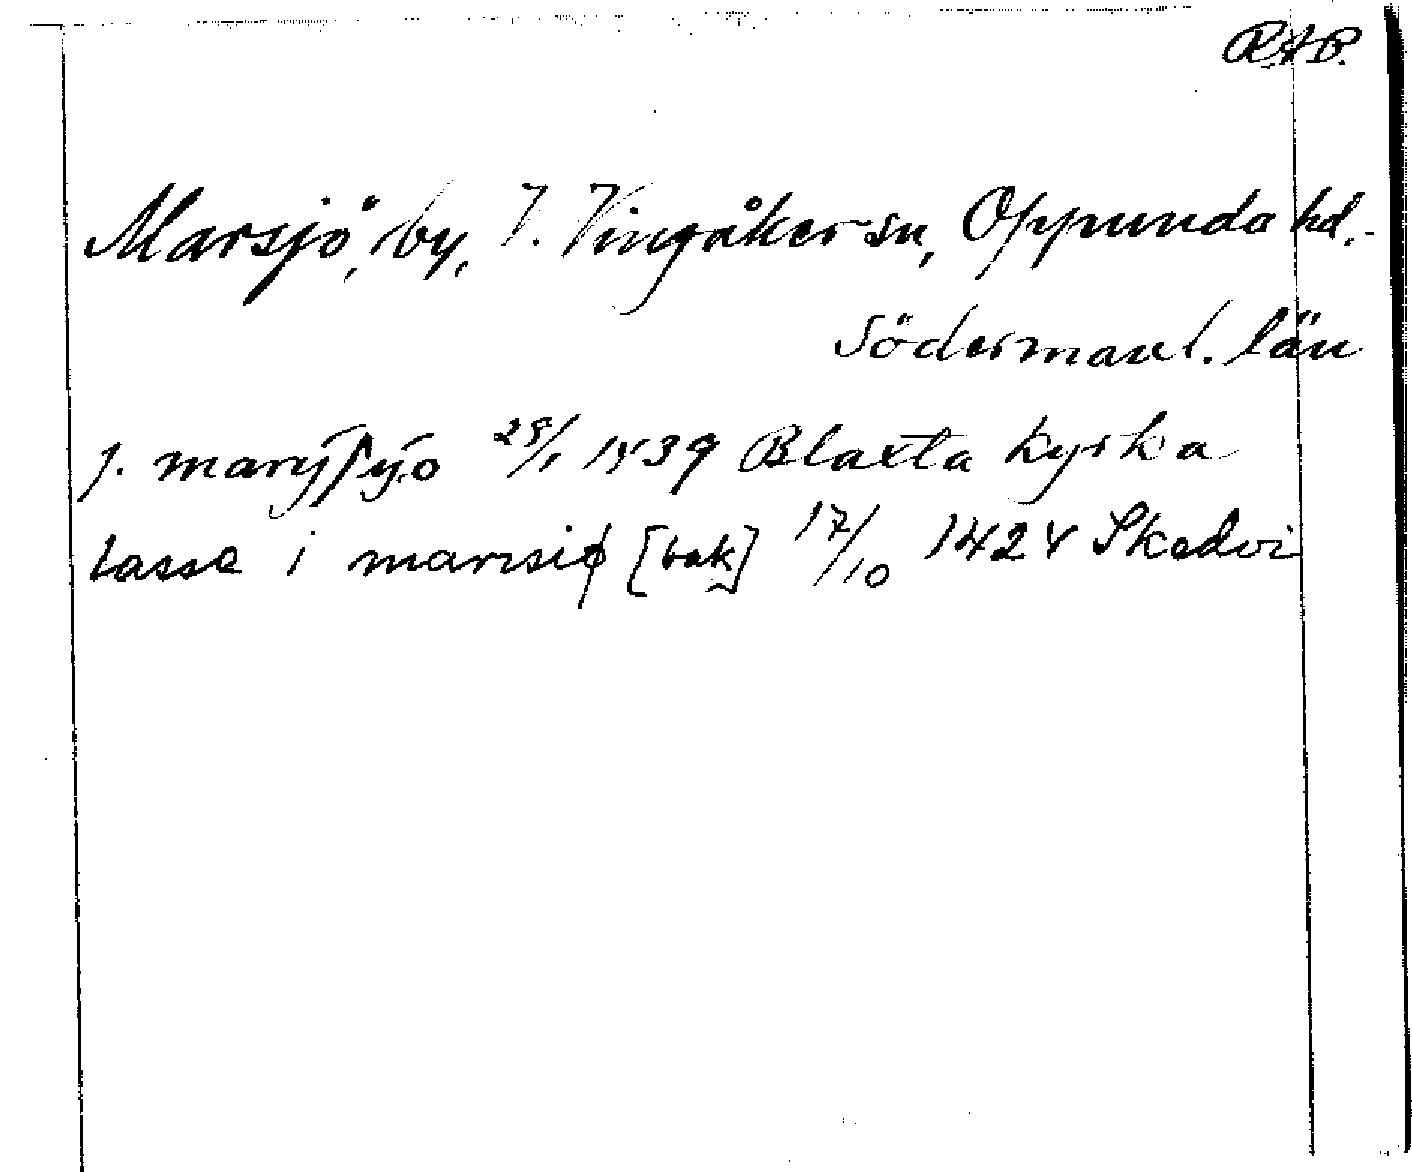 R.A.P.
Marsjö, by, V. Vingåker sn, Oppunda hd.
Södermanl. län
j. marÿsÿo 29/1 1439 Blaxta kyrka
lasse i marrsiø [bak] 17/10 1424 Skedvi